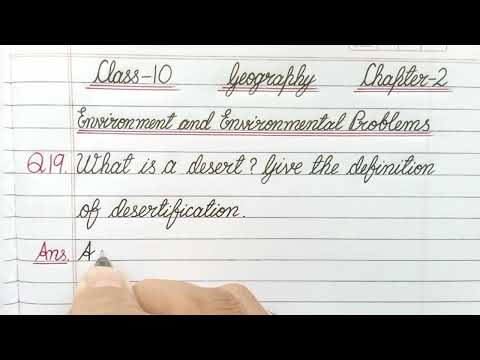 Class-10 Geography Chapter-2
Environment and Environmental Problems
Q19. What is a desert? Give the definition
of desertification.
Ans. A